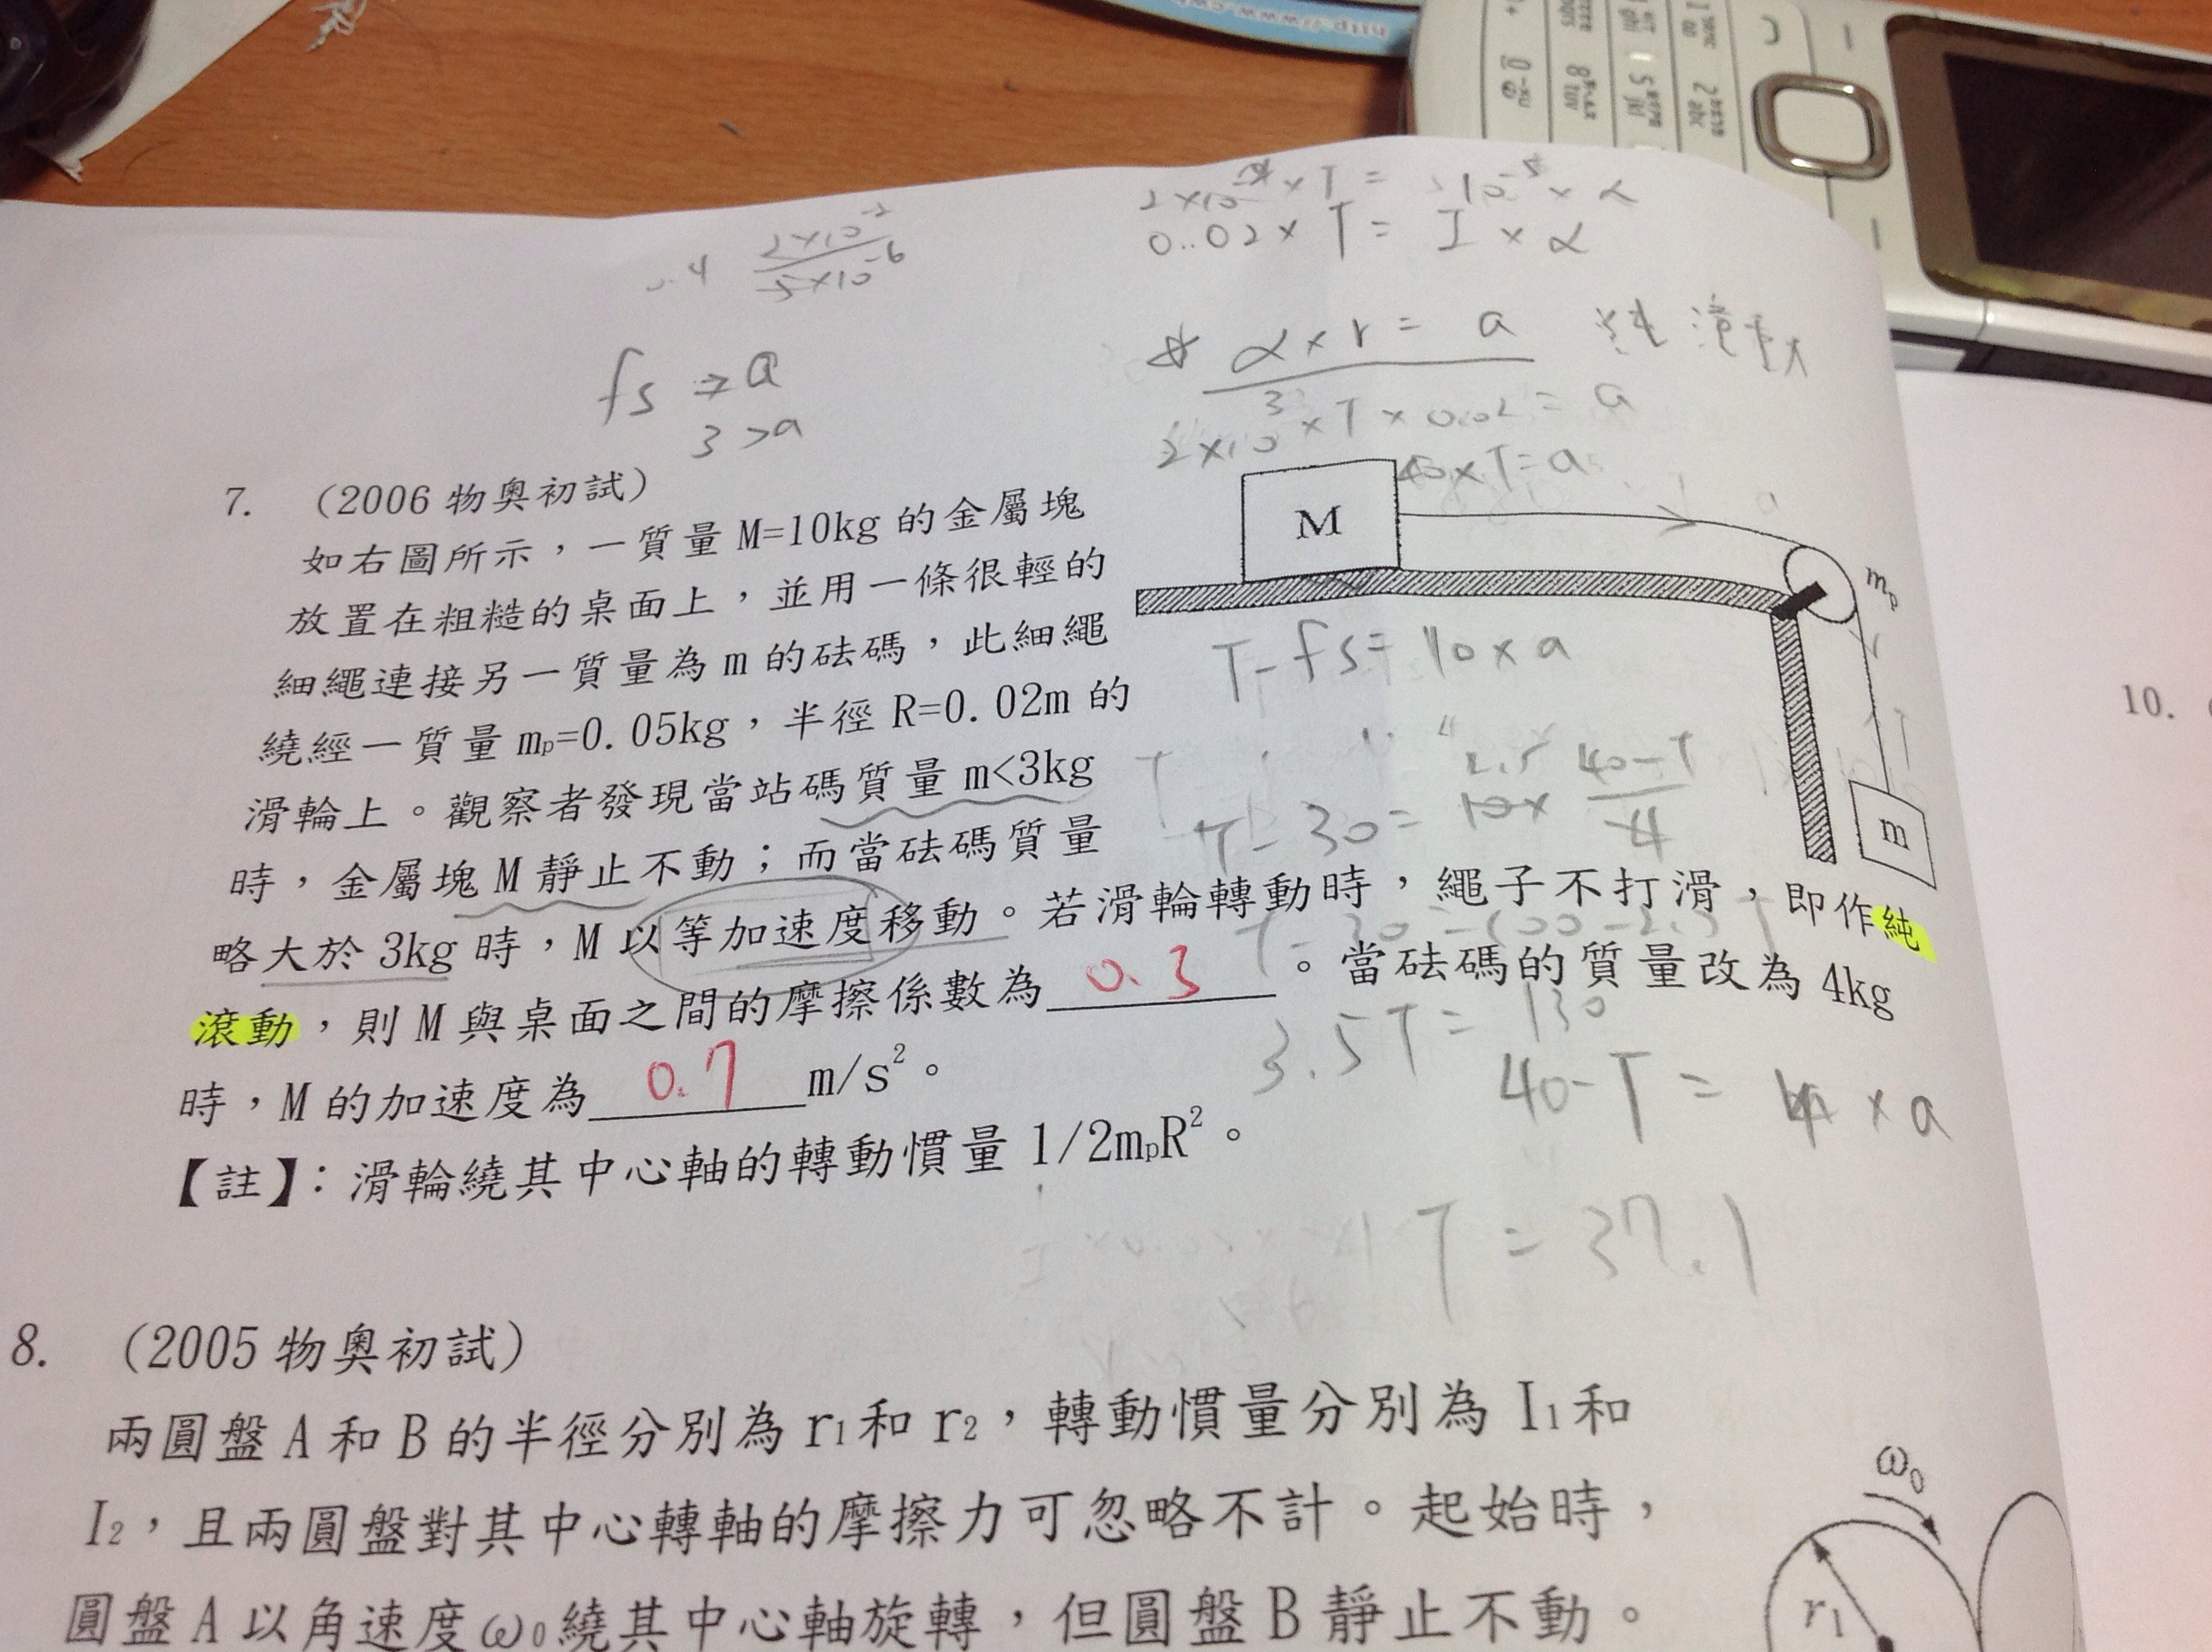 2×10 ×T = 10 × α
0.02×T = I × α
2×10⁻²
5×10⁻⁶
α×r = a 純滾動
fs ⇒ a
3 >a
2×10³×T×0.02 = a
40×T=a
7. （2006 物奧初試）
如右圖所示，一質量 M=10kg 的金屬塊
放置在粗糙的桌面上，並用一條很輕的
細繩連接另一質量為 m 的砝碼，此細繩
繞經一質量 mₚ=0.05kg，半徑 R=0.02m 的
滑輪上。觀察者發現當站碼質量 m<3kg
時，金屬塊 M 靜止不動；而當砝碼質量
略大於 3kg 時，M 以等加速度移動。若滑輪轉動時，繩子不打滑，即作純
滾動，則 M 與桌面之間的摩擦係數為 0.3 。當砝碼的質量改為 4kg
時，M 的加速度為 0.7 m/s²。
【註】：滑輪繞其中心軸的轉動慣量 1/2mₚR²。
M
mₚ
m
T-fs=10×a
2.5
T-30= 10× 40-T
4
3.5T= 130
40-T = 4 × a
T = 37.1
10.
8. （2005 物奧初試）
兩圓盤 A 和 B 的半徑分別為 r₁和 r₂，轉動慣量分別為 I₁和
I₂，且兩圓盤對其中心轉軸的摩擦力可忽略不計。起始時，
圓盤 A 以角速度ω₀繞其中心軸旋轉，但圓盤 B 靜止不動。
ω₀
r₁